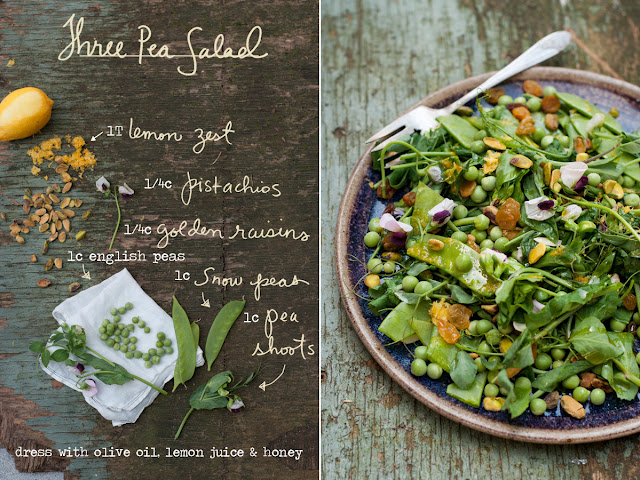 Three Pea Salad
1T lemon zest
1/4c pistachios
1/4c golden raisins
1c english peas
1c snow peas
1c pea
shoots
dress with olive oil, lemon juice & honey